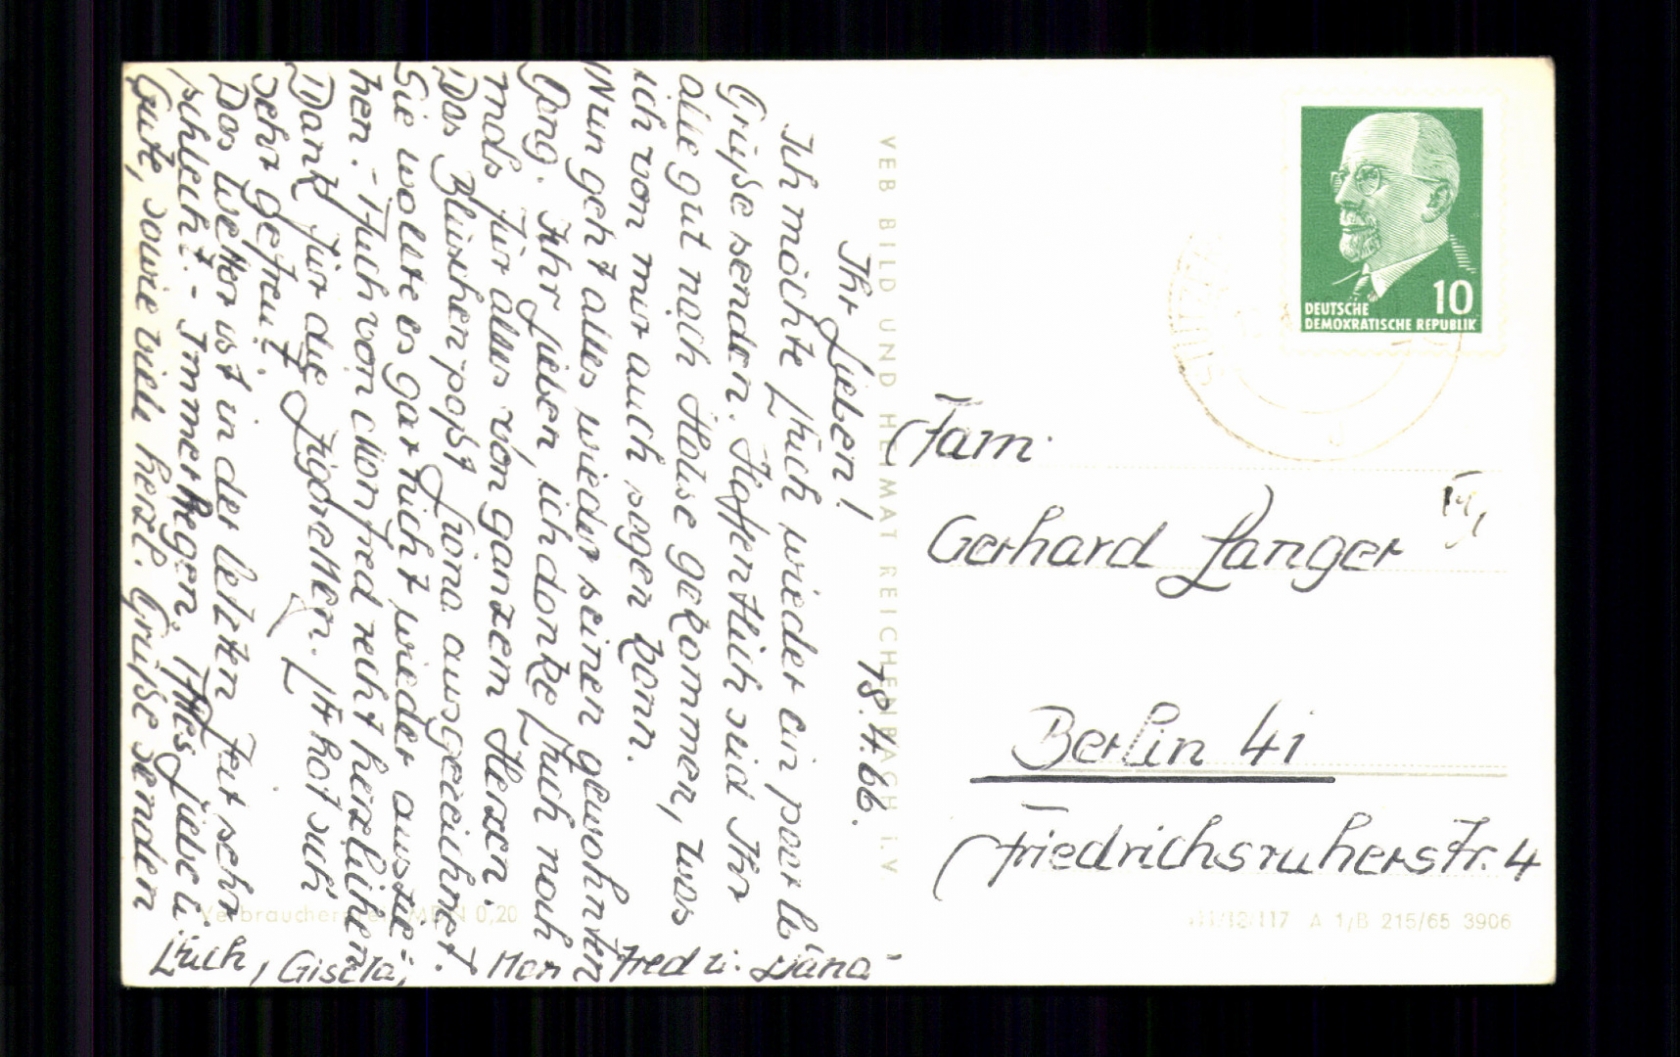 18.4.66.
Ihr Lieben!
Ich möchte Euch wieder ein paar lb.
Grüße senden. Hoffentlich seid Ihr
alle gut nach Hause gekommen, was
ich von mir auch sagen kann.
Nun geht alles wieder seinen gewohnten
Gang. Ihr Lieben, ich danke Euch noch
mals für alles von ganzem Herzen.
Das Blüschen paßt Liana ausgezeichnet.
Sie wollte es gar nicht wieder auszie-
hen. - Auch von Manfred recht herzlichen
Dank für die Zigaretten. Er hat sich
sehr gefreut.
Das Wetter ist in der letzten Zeit sehr
schlecht. - Immer Regen. Alles Liebe u.
Gute, sowie viele herzl. Grüße senden
Euch, Gisela, Manfred u. Liana -
VEB BILD UND HEIMAT REICHENBACH I. V
DEUTSCHE
DEMOKRATISCHE REPUBLIK
10
Fam.
Gerhard Langer
Berlin 41
Friedrichsruherstr. 4
Verbraucherpreis MDN 0,20
A 1/B 215/65 3906